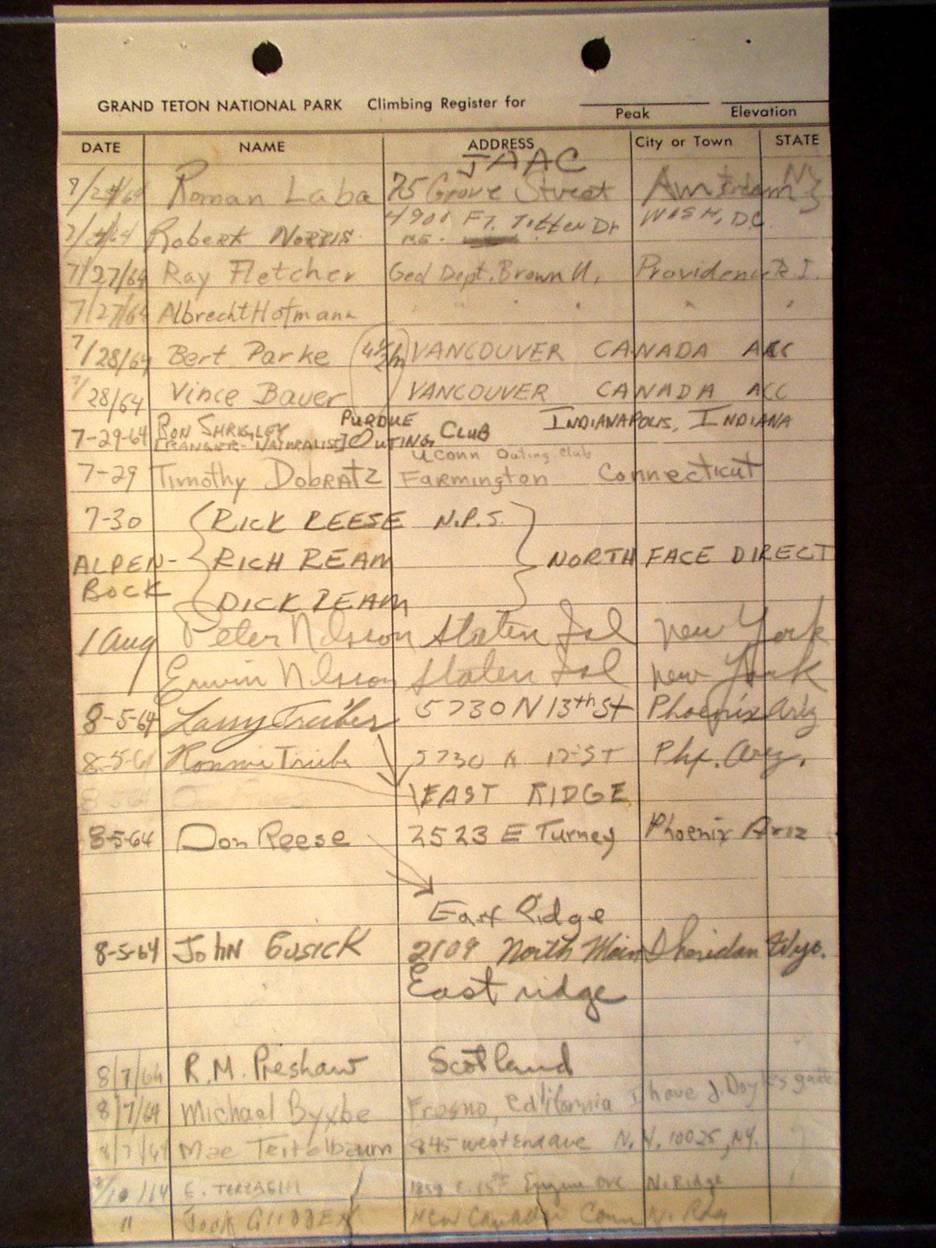 GRAND TETON NATIONAL PARK Climbing Register for
Peak Elevation
DATE NAME ADDRESS City or Town STATE
JAAC
Roman Laba 75 Grove Street NJ
Robert Norris 4901 Ft. Totten Dr WASH, DC
N.E.
7/27/64 Ray Fletcher Geol Dept. Brown U. Providence R I.
7/27/64 Albrecht Hofmann " " " " "
7/28/64 Bert Parke VANCOUVER CANADA ACC
7/28/64 Vince Bauer VANCOUVER CANADA ACC
7-29-64 RON SHRIGLEY PURDUE INDIANAPOLIS, INDIANA
[RANGER-NATURALIST] OUTING CLUB
UConn Outing Club
7-29 Timothy DobRATZ Farmington Connecticut
7-30 RICK REESE N.P.S.
ALPEN- RICH REAM NORTH FACE DIRECT
BOCK DICK REAM
1 Aug Peter Nilsson Staten Isl New York
Erwin Nilsson Staten Isl New York
8-5-64 Larry Treiber 5730 N 13th St Phoenix Ariz
8-5-64 5730 N Phx. Ariz.
EAST RIDGE
8-5-64 Don Reese 2523 E Turney Phoenix Ariz
East Ridge
8-5-64 JohN GUSICK 2109 North Main Sheridan Wyo.
East ridge
8/7/64 R.M. Preshaw Scotland
8/7/64 Michael Byxbe Fresno, California I have J. Doyles
8/7/64 Mae Teitelbaum 845 west end ave N.Y. 10025, NY.
E. Eugene Ore N. Ridge
" New Canaan Conn N.